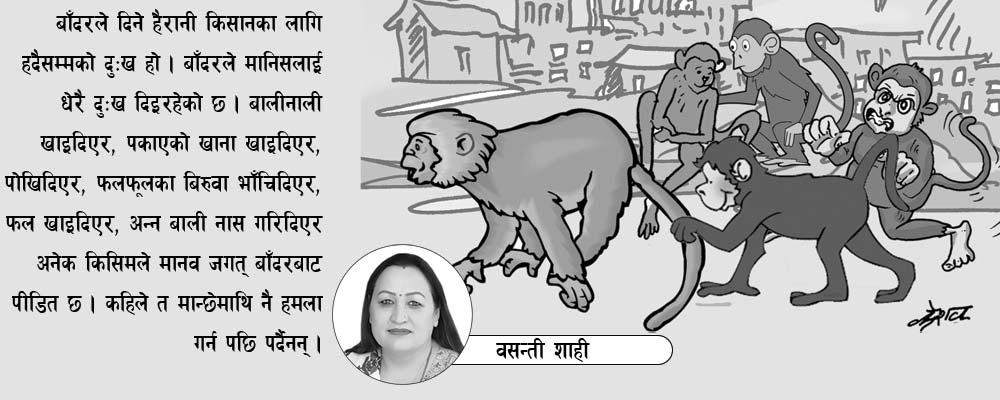 बाँदरले दिने हैरानी किसानका लागि
हदैसम्मको दुःख हो । बाँदरले मानिसलाई
धेरै दुःख दिइरहेको छ । बालीनाली
खाइदिएर, पकाएको खाना खाइदिएर,
पोखिदिएर, फलफूलका बिरुवा भाँचिदिएर,
फल खाइदिएर, अन्न बाली नास गरिदिएर
अनेक किसिमले मानव जगत् बाँदरबाट
पीडित छ । कहिले त मान्छेमाथि नै हमला
गर्न पछि पर्दैनन् ।
वसन्ती शाही